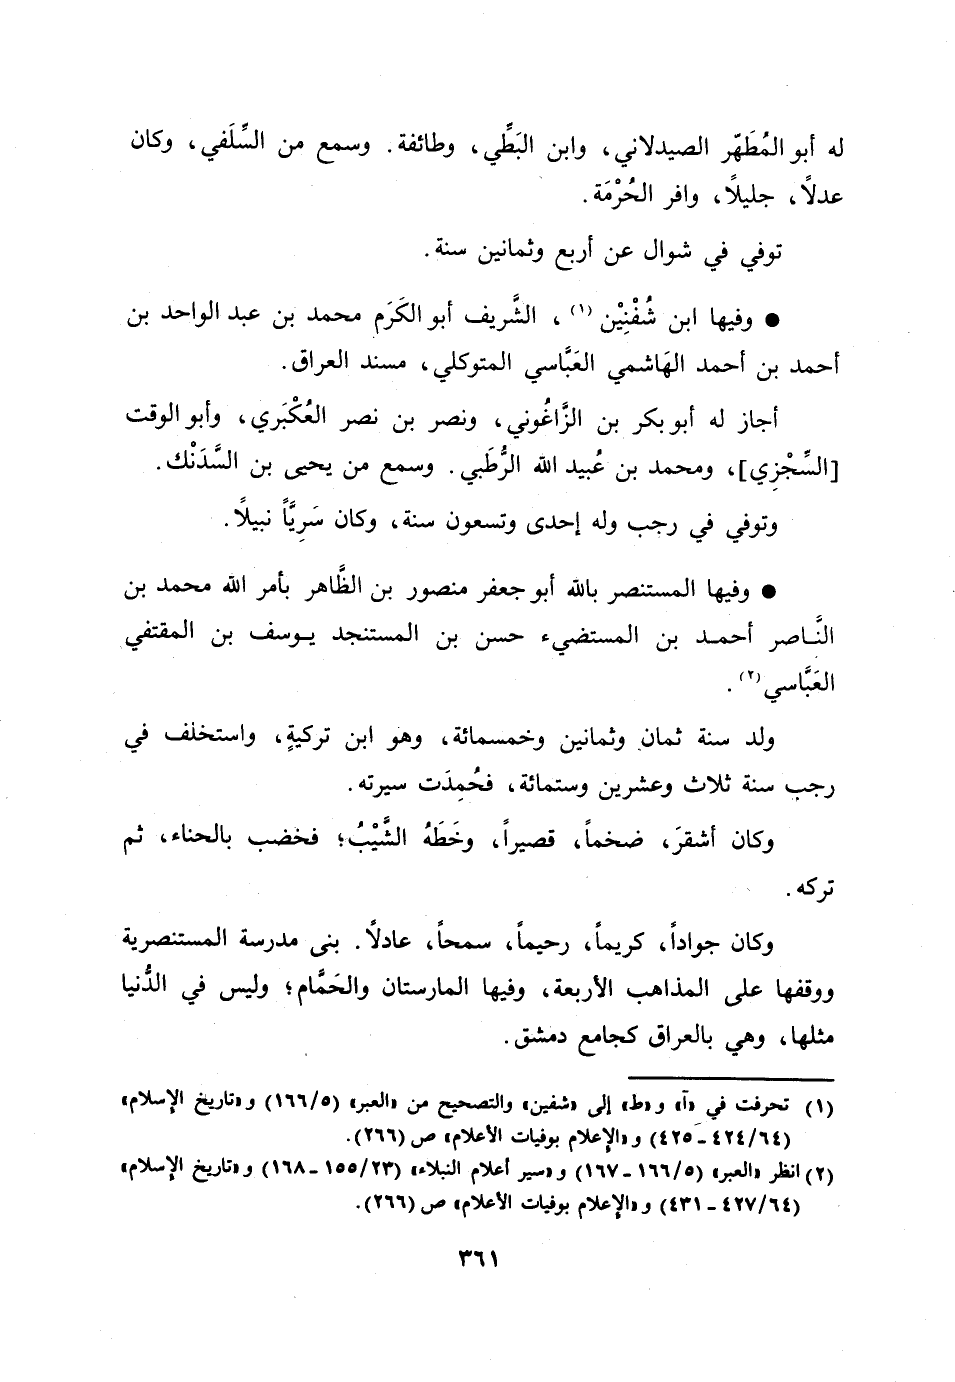 له أبو المُطَهّر الصيدلاني، وابن البَطِّي، وطائفة. وسمع من السِّلَفي، وكان
عدلاً، جليلاً، وافر الحُرْمَة.
توفي في شوال عن أربع وثمانين سنة.
● وفيها ابن شُفْنِيْن (١)، الشَّريف أبو الكَرَم محمد بن عبد الواحد بن
أحمد بن أحمد الهَاشمي العَبَّاسي المتوكلي، مسند العراق.
أجاز له أبو بكر بن الزَّاغُوني، ونصر بن نصر العُكْبَري، وأبو الوقت
[السِّجْزِي]، ومحمد بن عُبيد الله الرُّطَبي. وسمع من يحيى بن السَّدَنْك.
وتوفي في رجب وله إحدى وتسعون سنة، وكان سَرِيَّاً نبيلاً.
● وفيها المستنصر بالله أبو جعفر منصور بن الظَّاهر بأمر الله محمد بن
النَّاصر أحمد بن المستضيء حسن بن المستنجد يوسف بن المقتفي
العَبَّاسي (٢).
ولد سنة ثمان وثمانين وخمسمائة، وهو ابن تركيةٍ، واستخلف في
رجب سنة ثلاث وعشرين وستمائة، فحُمِدَت سيرته.
وكان أشقرَ، ضخماً، قصيراً، وخَطَهُ الشَّيْبُ؛ فخضب بالحناء، ثم
تركه.
وكان جواداً، كريماً، رحيماً، سمحاً، عادلاً. بنى مدرسة المستنصرية
ووقفها على المذاهب الأربعة، وفيها المارستان والحَمَّام؛ وليس في الدُّنيا
مثلها، وهي بالعراق كجامع دمشق.
(١) تحرفت في «آ» و«ط» إلى «شفين» والتصحيح من «العبر» (١٦٦/٥) و«تاريخ الإسلام»
(٤٢٤/٦٤ - ٤٢٥) و«الإعلام بوفيات الأعلام» ص (٢٦٦).
(٢) انظر «العبر» (١٦٦/٥ - ١٦٧) و«سير أعلام النبلاء» (١٥٥/٢٣ - ١٦٨) و«تاريخ الإسلام»
(٤٢٧/٦٤ - ٤٣١) و«الإعلام بوفيات الأعلام» ص (٢٦٦).
٣٦١